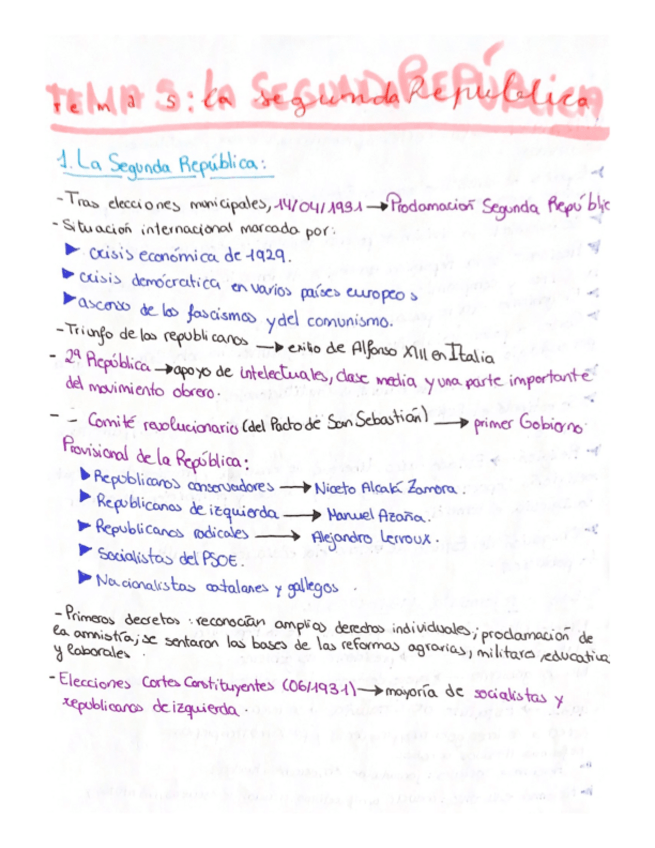 Tema 5: la Segunda República
1. La Segunda República:
- Tras elecciones municipales, 14/04/1931 → Proclamación Segunda Repúblic
- Situación internacional marcada por:
▶ crisis económica de 1929.
▶ crisis democratica en varios países europeos
▶ ascenso de los fascismos y del comunismo.
- Triunfo de los republicanos → exilio de Alfonso XIII en Italia
- 2ª República → apoyo de intelectuales, clase media y una parte importante
del movimiento obrero.
- - Comité revolucionario (del Pacto de San Sebastián) → primer Gobierno
Provisional de la República:
▶ Republicanos conservadores → Niceto Alcalá Zamora.
▶ Republicanos de izquierda → Manuel Azaña.
▶ Republicanos radicales → Alejandro Lerroux.
▶ Socialistas del PSOE.
▶ Nacionalistas catalanes y gallegos.
- Primeros decretos: reconocían amplios derechos individuales; proclamación de
la amnistía; se sentaron las bases de las reformas agrarias, militares, educativa
y laborales.
- Elecciones Cortes Constituyentes (06/1931) → mayoría de socialistas y
republicanos de izquierda.